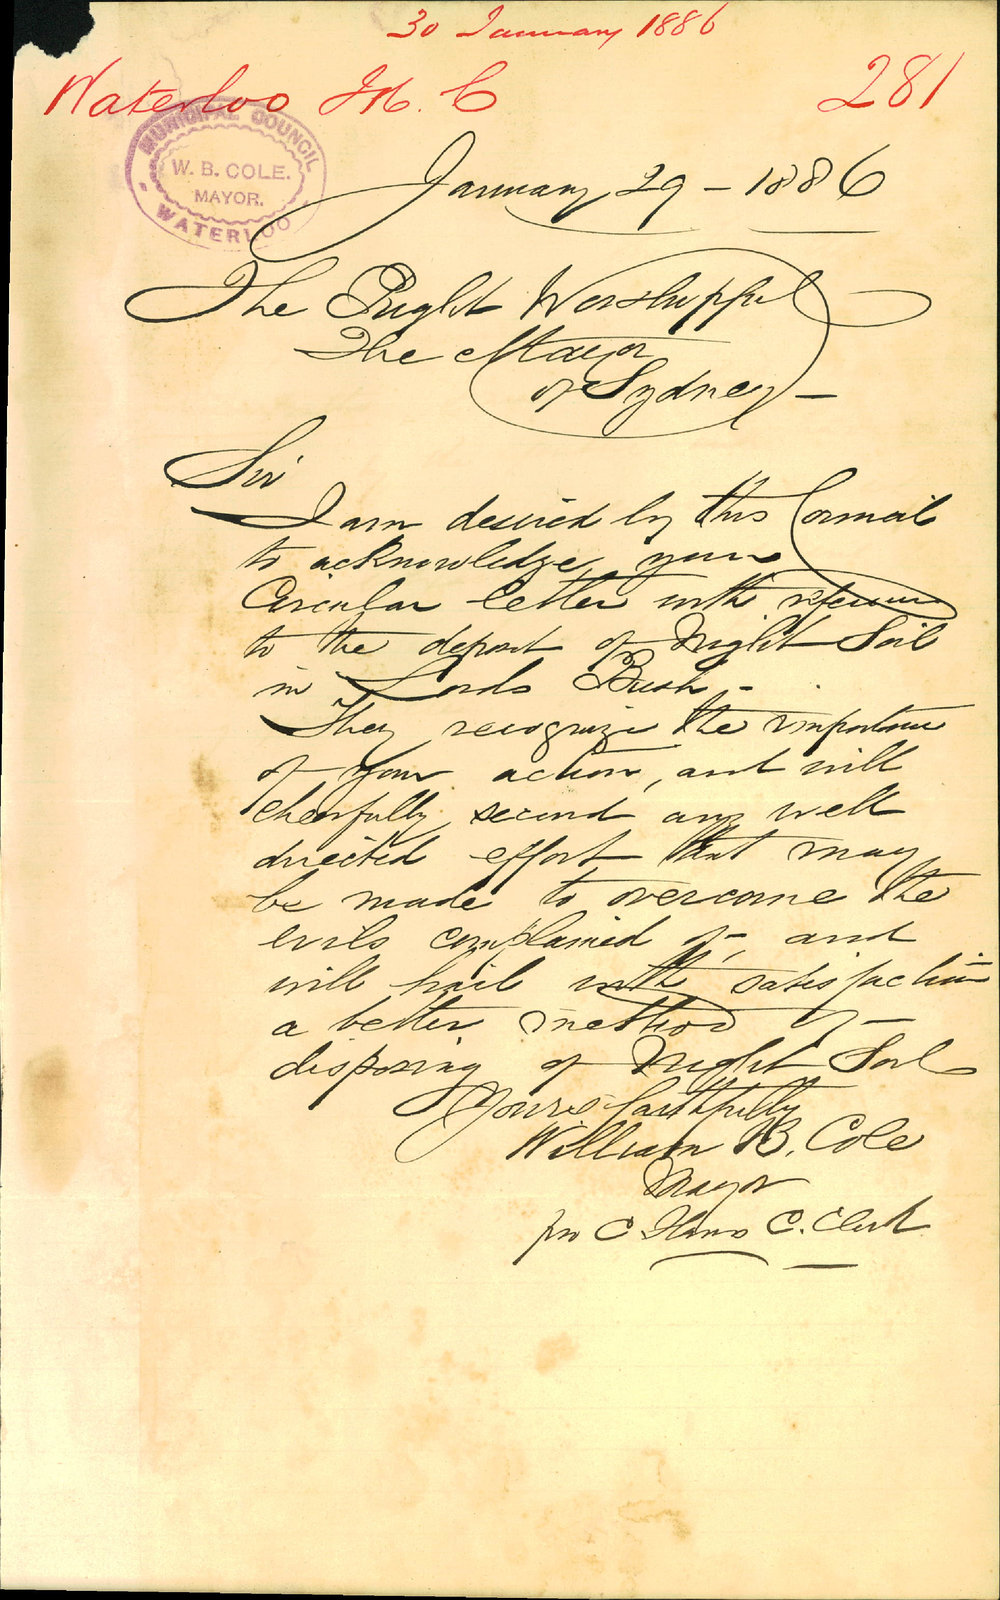 30 January 1886
Waterloo M. C 281
MUNICIPAL COUNCIL
W. B. COLE.
MAYOR.
WATERLOO
January 29 - 1886
The Right Worshipful
The Mayor
of Sydney -
Sir
I am desired by this Council
to acknowledge your
Circular letter with reference
to the deposit of Night Soil
in Lords Bush, -
They recognize the importance
of your action, and will
cheerfully second any well
directed effort that may
be made to overcome the
evils complained of, and
will hail with satisfaction
a better method of
disposing of Night Soil
Yours faithfully
William B. Cole
Mayor
pro C C. Clerk